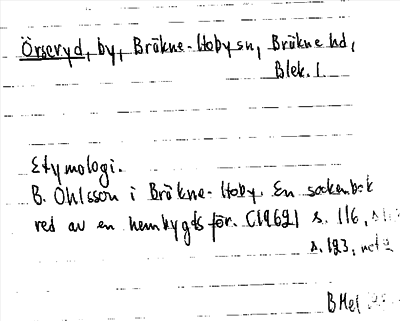 Örseryd, by, Bräkne-Hoby sn, Bräkne hd,
Blek. l.
Etymologi.
B. Ohlsson i Bräkne-Hoby. En sockenbok
red av en hembygdsför. (1962) s. 116,
s. 123, not 2
BMel